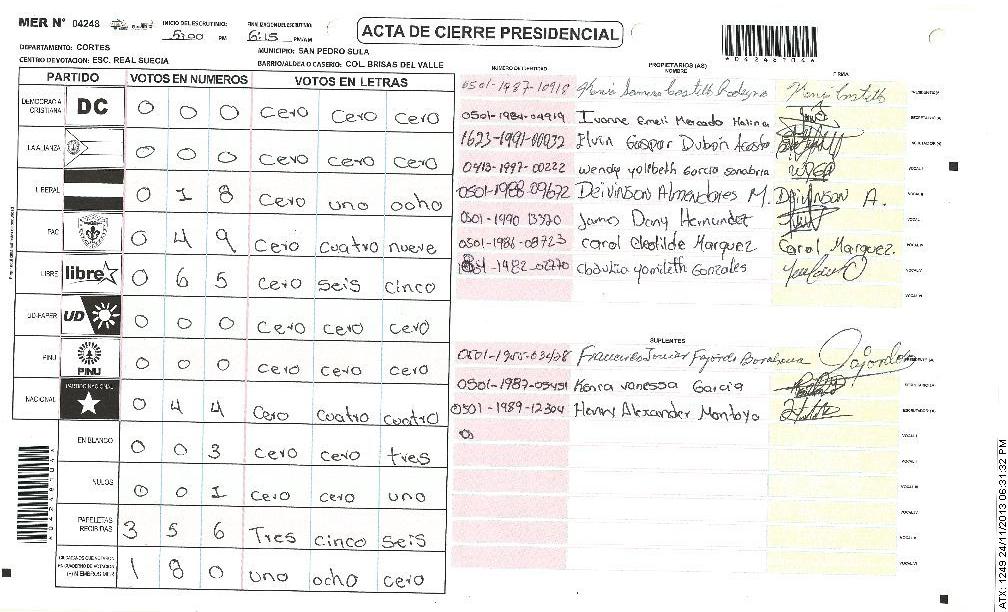 MER N° 04248
INICIO DEL ESCRUTINIO: 5:00 PM
FINALIZACION DEL ESCRUTINIO: 6:15 PM/AM
ACTA DE CIERRE PRESIDENCIAL
*04248704*
DEPARTAMENTO: CORTES
MUNICIPIO: SAN PEDRO SULA
CENTRO DE VOTACION: ESC. REAL SUECIA
BARRIO/ALDEA O CASERIO: COL. BRISAS DEL VALLE
PARTIDO VOTOS EN NUMEROS VOTOS EN LETRAS
DEMOCRACIA CRISTIANA DC 0 0 0 Cero Cero Cero
LA ALIANZA 0 0 0 Cero Cero Cero
LIBERAL 0 1 8 Cero uno ocho
PAC 0 4 9 Cero cuatro nueve
LIBRE libre 0 6 5 Cero seis cinco
UD-FAPER UD 0 0 0 Cero Cero Cero
PINU PINU 0 0 0 Cero Cero Cero
NACIONAL PARTIDO NACIONAL 0 4 4 Cero Cuatro Cuatro
EN BLANCO 0 0 3 Cero Cero tres
NULOS 0 0 1 Cero cero uno
PAPELETAS RECIBIDAS 3 5 6 Tres cinco seis
CIUDADANOS QUE VOTARON EN CUADERNO DE VOTACION (+) MIEMBROS MER 1 8 0 uno ocho cero
NUMERO DE IDENTIDAD PROPIETARIOS (AS) NOMBRE FIRMA
0501-1987-10918
0501-1984-04919 Ivonne Emeli Mercado Molina
1623-1991-00032 Elvin Gaspar Dubón Acosta
0413-1997-00222 Wendy yolibeth Garcia Sanabria
0501-1988-09672 Deivinson Almendares M. Deivinson A.
0501-1990 13320 James Dany Hernandez
0501-1986-08723 Carol Cleotilde Marquez Carol Marquez.
1982-02270 Claudia Yamileth Gonzales
SUPLENTES
Francisco Javier Fajardo
0501-1987-05451 Kenia Vanessa Garcia
0501-1989-12304 Henry Alexander Montoya
ATX: 1249 24/11/2013 06:31:32 PM